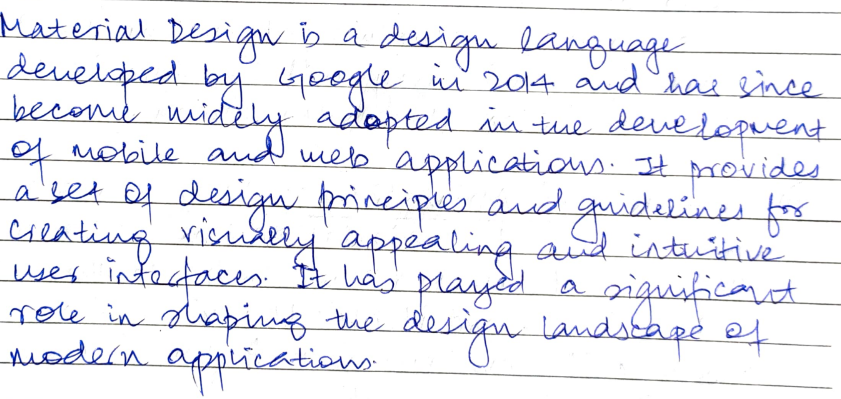 Material Design is a design language
developed by Google in 2014 and has since
become widely adopted in the development
of mobile and web applications. It provides
a set of design principles and guidelines for
creating visually appealing and intuitive
user interfaces. It has played a significant
role in shaping the design landscape of
modern applications.